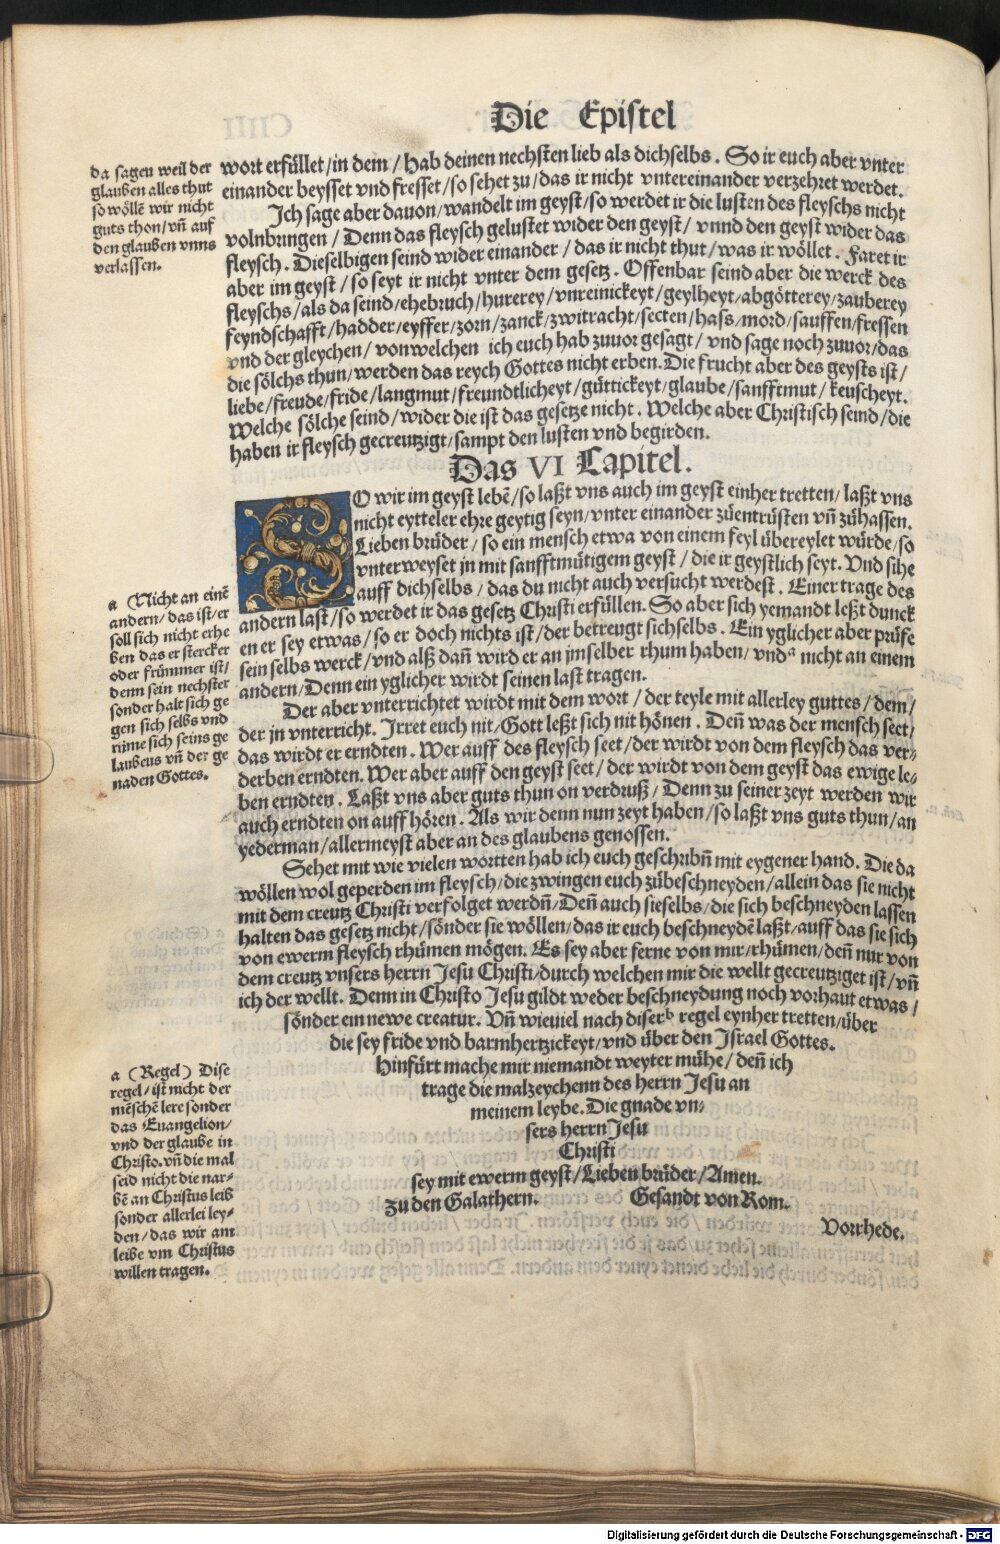 Die Epistel
da sagen weil der
glauben alles thut
so wöllē wir nicht
guts thon/vñ auf
den glauben vnns
verlassen.
wort erfüllet/in dem/Hab deinen nechsten lieb als dichselbs. So ir euch aber vnter
einander beysset vnd fresset/so sehet zu/das ir nicht vntereinander verzehret werdet.
Ich sage aber dauon/wandelt im geyst/so werdet ir die lusten des fleyschs nicht
volnbringen/Denn das fleysch gelustet wider den geyst/vnnd den geyst wider das
fleysch. Dieselbigen seind wider einander/das ir nicht thut/was ir wöllet. Faret ir
aber im geyst/so seyt ir nicht vnter dem gesetz. Offenbar seind aber die werck des
fleyschs/als da seind/ehebruch/hurerey/vnreinickeyt/geylheyt/abgötterey/zauberey
feyndschafft/hadder/eyffer/zorn/zanck/zwitracht/secten/hass/mord/sauffen/fressen
vnd der gleychen/vonwelchen ich euch hab zuuor gesagt/vnd sage noch zuuor/das
die sölchs thun/werden das reych Gottes nicht erben. Die frucht aber des geysts ist/
liebe/freude/fride/langmut/freundtlicheyt/güttickeyt/glaube/sanfftmut/keuscheyt.
Welche sölche seind/wider die ist das gesetze nicht. Welche aber Christisch seind/die
haben ir fleysch gecreutzigt/sampt den lusten vnd begirden.
Das VI Capitel.
SO wir im geyst lebē/so laßt vns auch im geyst einher tretten/laßt vns
nicht eytteler ehre geytig seyn/vnter einander züentrüsten vñ zühassen.
Lieben brüder/so ein mensch etwa von einem feyl übereylet würde/so
vnterweyset jn mit sanfftmütigem geyst/die ir geystlich seyt. Vnd sihe
auff dichselbs/das du nicht auch versucht werdest. Einer trage des
andern last/so werdet ir das gesetz Christi erfüllen. So aber sich yemandt leßt dunck
en er sey etwas/so er doch nichts ist/der betreugt sichselbs. Ein yglicher aber prüfe
sein selbs werck/vnd alß dañ wird er an jmselber rhum haben/vnd a nicht an einem
andern/Denn ein yglicher wirdt seinen last tragen.
a (Nicht an einē
andern/das ist/er
soll sich nicht erhe
ben das er stercker
oder frümmer ist/
denn sein nechster
sonder halt sich ge
gen sich selbs vnd
rüme sich seins ge
laubens vñ der ge
naden Gottes.
Der aber vnterrichtet wirdt mit dem wort/der teyle mit allerley guttes/dem/
der jn vnterricht. Irret euch nit/Gott leßt sich nit hönen. Deñ was der mensch seet/
das wirdt er erndten. Wer auff des fleysch seet/der wirdt von dem fleysch das ver-
derben erndten. Wer aber auff den geyst seet/der wirdt von dem geyst das ewige le-
ben erndten. Laßt vns aber guts thun on verdruß/Denn zu seiner zeyt werden wir
auch erndten on auff hören. Als wir denn nun zeyt haben/so laßt vns guts thun/an
yederman/allermeyst aber an des glaubens genossen.
Sehet mit wie vielen wortten hab ich euch geschribñ mit eygener hand. Die da
wöllen wol geperden im fleysch/die zwingen euch zübeschneyden/allein das sie nicht
mit dem creutz Christi verfolget werdñ/Deñ auch sieselbs/die sich beschneyden lassen
halten das gesetz nicht/sönder sie wöllen/das ir euch beschneydē laßt/auff das sie sich
von ewerm fleysch rhümen mögen. Es sey aber ferne von mir/rhümen/deñ nur von
dem creutz vnsers herrn Jesu Christi/durch welchen mir die wellt gecreutziget ist/vñ
ich der wellt. Denn in Christo Jesu gildt weder beschneydung noch vorhaut etwas/
sönder ein newe creatur. Vñ wieuiel nach diser b regel eynher tretten/über
die sey fride vnd barmhertzickeyt/vnd über den Israel Gottes.
Hinfürt mache mir niemandt weyter mühe/deñ ich
trage die malzeychenn des herrn Jesu an
meinem leybe. Die gnade vn-
sers herrn Jesu
Christi
sey mit ewerm geyst/Lieben brüder/Amen.
zu den Galathern. Gesandt von Rom.
a (Regel) Dise
regel/ist nicht der
mēschē lere sonder
das Euangelion/
vnd der glaube in
Christo. vñ die mal
seid nicht die nar-
bē an Christus leib
sonder allerlei ley-
den/das wir am
leibe vm Christus
willen tragen.
Vorrhede.
Digitalisierung gefördert durch die Deutsche Forschungsgemeinschaft - DFG